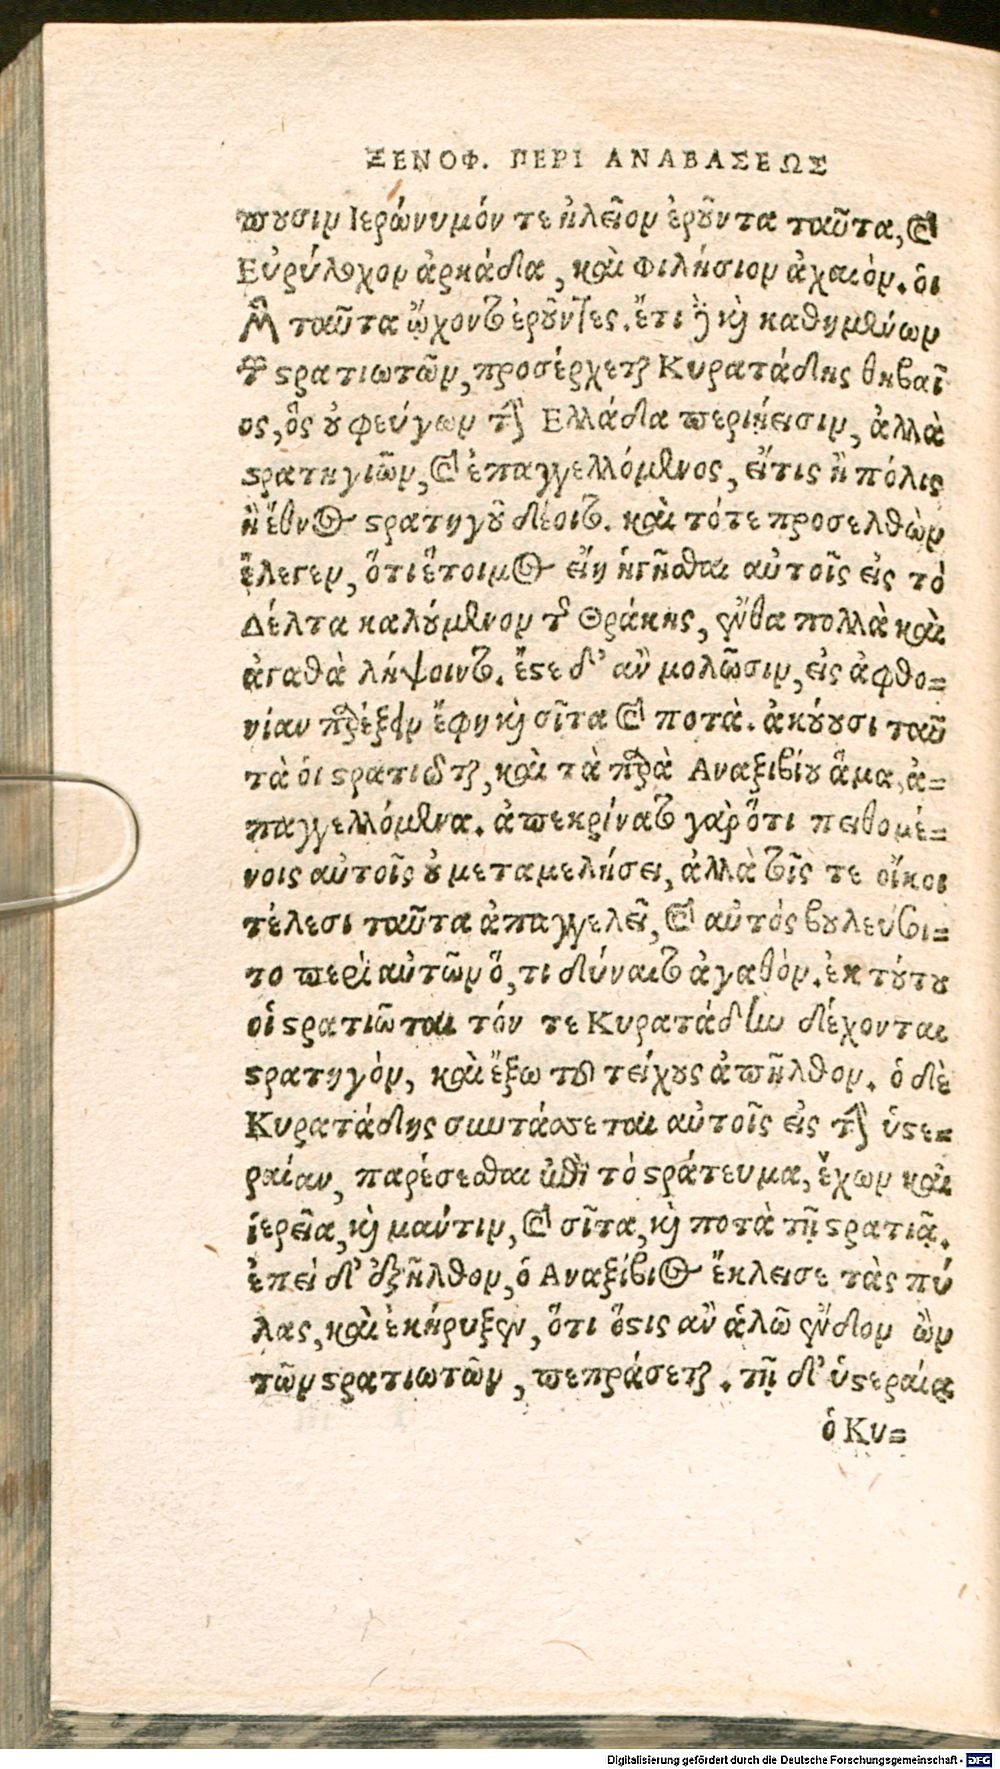 ΞΕΝΟΦ. ΠΕΡΙ ΑΝΑΒΑΣΕΩΣ
πουσιν Ιερώνυμόν τε ἠλεῖον ἐροῦντα ταῦτα, καὶ
Εὐρύλοχον ἀρκάδα, καὶ Φιλήσιον ἀχαιόν. ὁι
μὲν ταῦτα ᾤχοντο ἐροῦντες. ἔτι δὲ κỳ καθημένων
τῶν στρατιωτῶν, προσέρχεται Κυρατάδης θηβαῖ
ος, ὃς οὐ φεύγων τὴν Ελλάδα περιήεισιν, ἀλλὰ
στρατηγιῶν, καὶ ἐπαγγελλόμενος, εἴτις ἢ πόλις
ἢ ἔθνος στρατηγοῦ δέοιτο. καὶ τότε προσελθὼν
ἔλεγεν, ὅτι ἕτοιμος εἴη ἡγῆσθαι αὐτοῖς εἰς τὸ
Δέλτα καλούμενον τῆς Θράκης, ἔνθα πολλὰ καὶ
ἀγαθὰ λήψοιντο. ἔστε δ' ἂν μολῶσιν, εἰς ἀφθο=
νίαν παρέξειν ἔφη καὶ σῖτα καὶ ποτὰ. ἀκούουσι ταῦ
τὰ ὁι στρατιῶται, καὶ τὰ παρὰ Αναξιβίου ἅμα, ἀ=
παγγελλόμενα. ἀπεκρίνατο γὰρ ὅτι πειθομέ=
νοις αὐτοῖς οὐ μεταμελήσει, ἀλλὰ τοῖς τε οἴκοι
τέλεσι ταῦτα ἀπαγγελεῖ, καὶ αὐτὸς βουλεύσοι=
το περὶ αὐτῶν ὅ, τι δύναιτο ἀγαθὸν. ἐκ τούτου
οἱ στρατιῶται τόν τε Κυρατάδην δέχονται
στρατηγὸν, καὶ ἔξω τοῦ τείχους ἀπῆλθον. ὁ δὲ
Κυρατάδης συντάσσεται αὐτοῖς εἰς τὴν ὑστε=
ραίαν, παρέσεσθαι ἐπὶ τὸ στράτευμα, ἔχων καὶ
ἱερεῖα, καὶ μάντιν, καὶ σῖτα, καὶ ποτὰ τῇ στρατιᾷ.
ἐπεὶ δ' ἐξῆλθον, ὁ Αναξίβιος ἔκλεισε τὰς πύ
λας, καὶ ἐκήρυξεν, ὅτι ὅστις ἂν ἁλῶ ἔνδον ὢν
τῶν στρατιωτῶν, πεπράσεται. τῇ δ' ὑστεραία
ὁ Κυ=
Digitalisierung gefördert durch die Deutsche Forschungsgemeinschaft - DFG